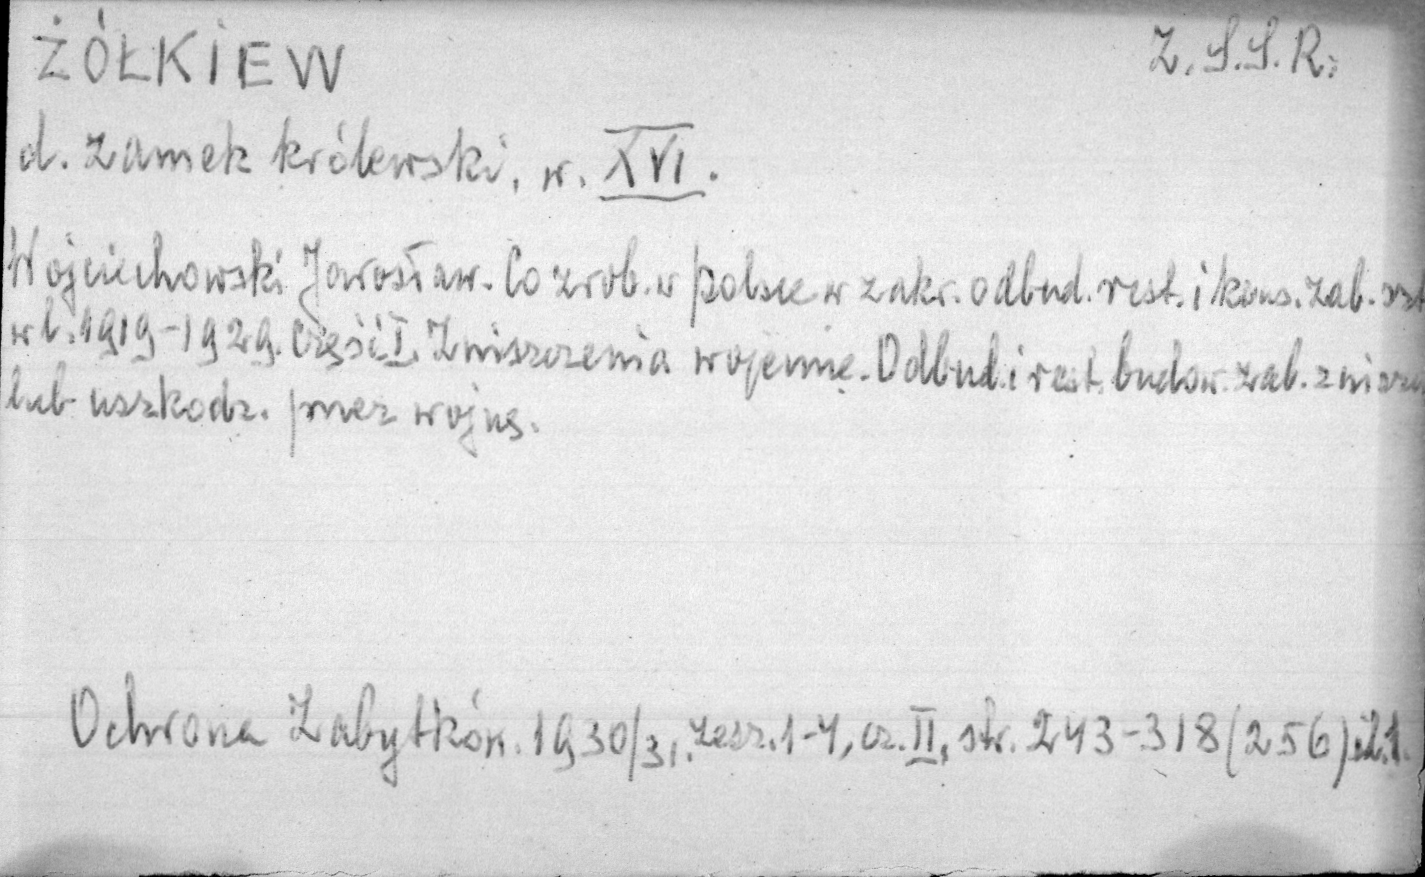 ŻÓŁKIEW
Z.S.S.R.
d. zamek królewski, w. XVI.
Wojciechowski Jarosław. Co zrob. w Polsce w zakr. odbud. rest. i kons. zab.
w l. 1919-1929. Część I. Zniszczenia wojenne. Odbud. i rest. budow. zab. zniszcz
lub uszkodz. przez wojnę.
Ochrona Zabytków. 1930/31, zesz. 1-4, cz. II, str. 243-318 (256) il. 1.